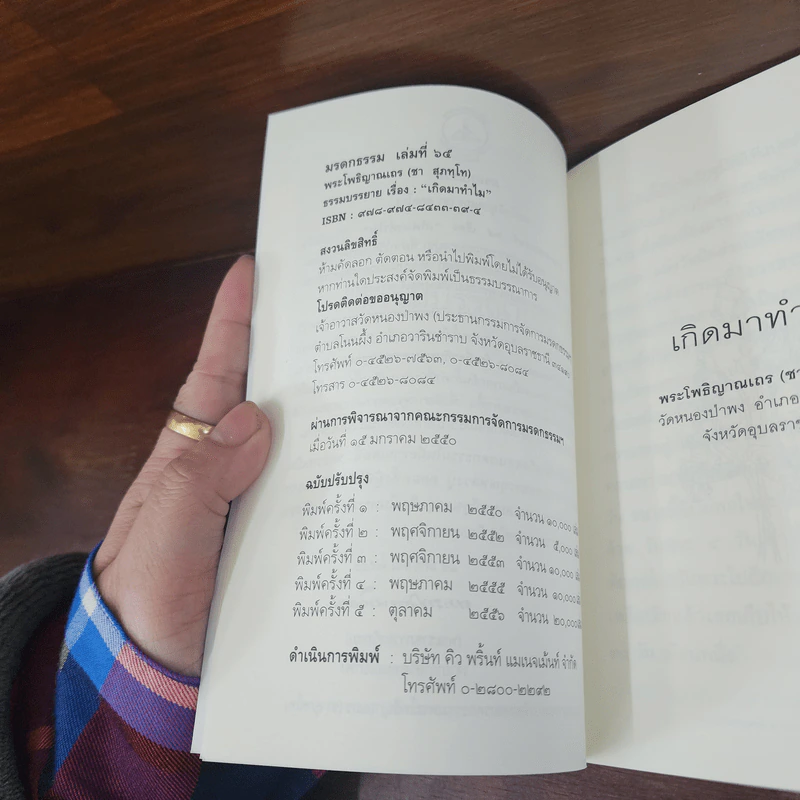 มรดกธรรม เล่มที่ ๖๕
พระโพธิญาณเถร (ชา สุภทฺโท)
ธรรมบรรยาย เรื่อง : "เกิดมาทำไม"
ISBN : ๙๗๘-๙๗๔-๘๔๓๓-๓๙-๔
สงวนลิขสิทธิ์
ห้ามคัดลอก ตัดตอน หรือนำไปพิมพ์โดยไม่ได้รับอนุญาต
หากท่านใดประสงค์จัดพิมพ์เป็นธรรมบรรณาการ
โปรดติดต่อขออนุญาต
เจ้าอาวาสวัดหนองป่าพง (ประธานกรรมการจัดการมรดกธรรมฯ
ตำบลโนนผึ้ง อำเภอวารินชำราบ จังหวัดอุบลราชธานี
โทรศัพท์ ๐-๔๕๒๖-๗๕๖๓, ๐-๔๕๒๖-๘๐๘๔
โทรสาร ๐-๔๕๒๖-๘๐๘๔
ผ่านการพิจารณาจากคณะกรรมการจัดการมรดกธรรมฯ
เมื่อวันที่ ๑๕ มกราคม ๒๕๕๐
ฉบับปรับปรุง
พิมพ์ครั้งที่ ๑ : พฤษภาคม ๒๕๕๐ จำนวน ๑๐,๐๐๐
พิมพ์ครั้งที่ ๒ : พฤศจิกายน ๒๕๕๒ จำนวน ๕,๐๐๐
พิมพ์ครั้งที่ ๓ : พฤศจิกายน ๒๕๕๓ จำนวน ๑๐,๐๐๐
พิมพ์ครั้งที่ ๔ : พฤษภาคม ๒๕๕๕ จำนวน ๑๐,๐๐๐
พิมพ์ครั้งที่ ๕ : ตุลาคม ๒๕๕๖ จำนวน ๒๐,๐๐๐
ดำเนินการพิมพ์ : บริษัท คิว พริ้นท์ แมเนจเม้นท์ จำกัด
โทรศัพท์ ๐-๒๘๐๐-๒๒๙๒
เกิดมาทำ
พระโพธิญาณเถร (ชา
วัดหนองป่าพง อำเภอ
จังหวัดอุบลราช